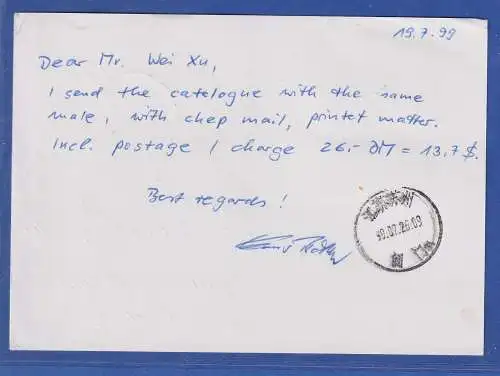 19.7.99
Dear Mr. Wei Xu,
I send the catelogue with the same
male, with chep mail, printet matter.
Incl. postage I charge 26,- DM = 13,7 $.
Best regards!
99.07.26.09